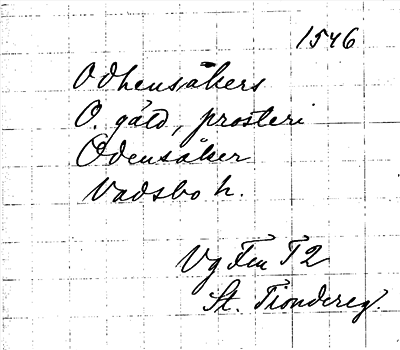 1546
Odhensåkers
O. gäld, prosteri
Odensåker
Vadsbo h.
Vg Fen T2
St. Tiondereg.